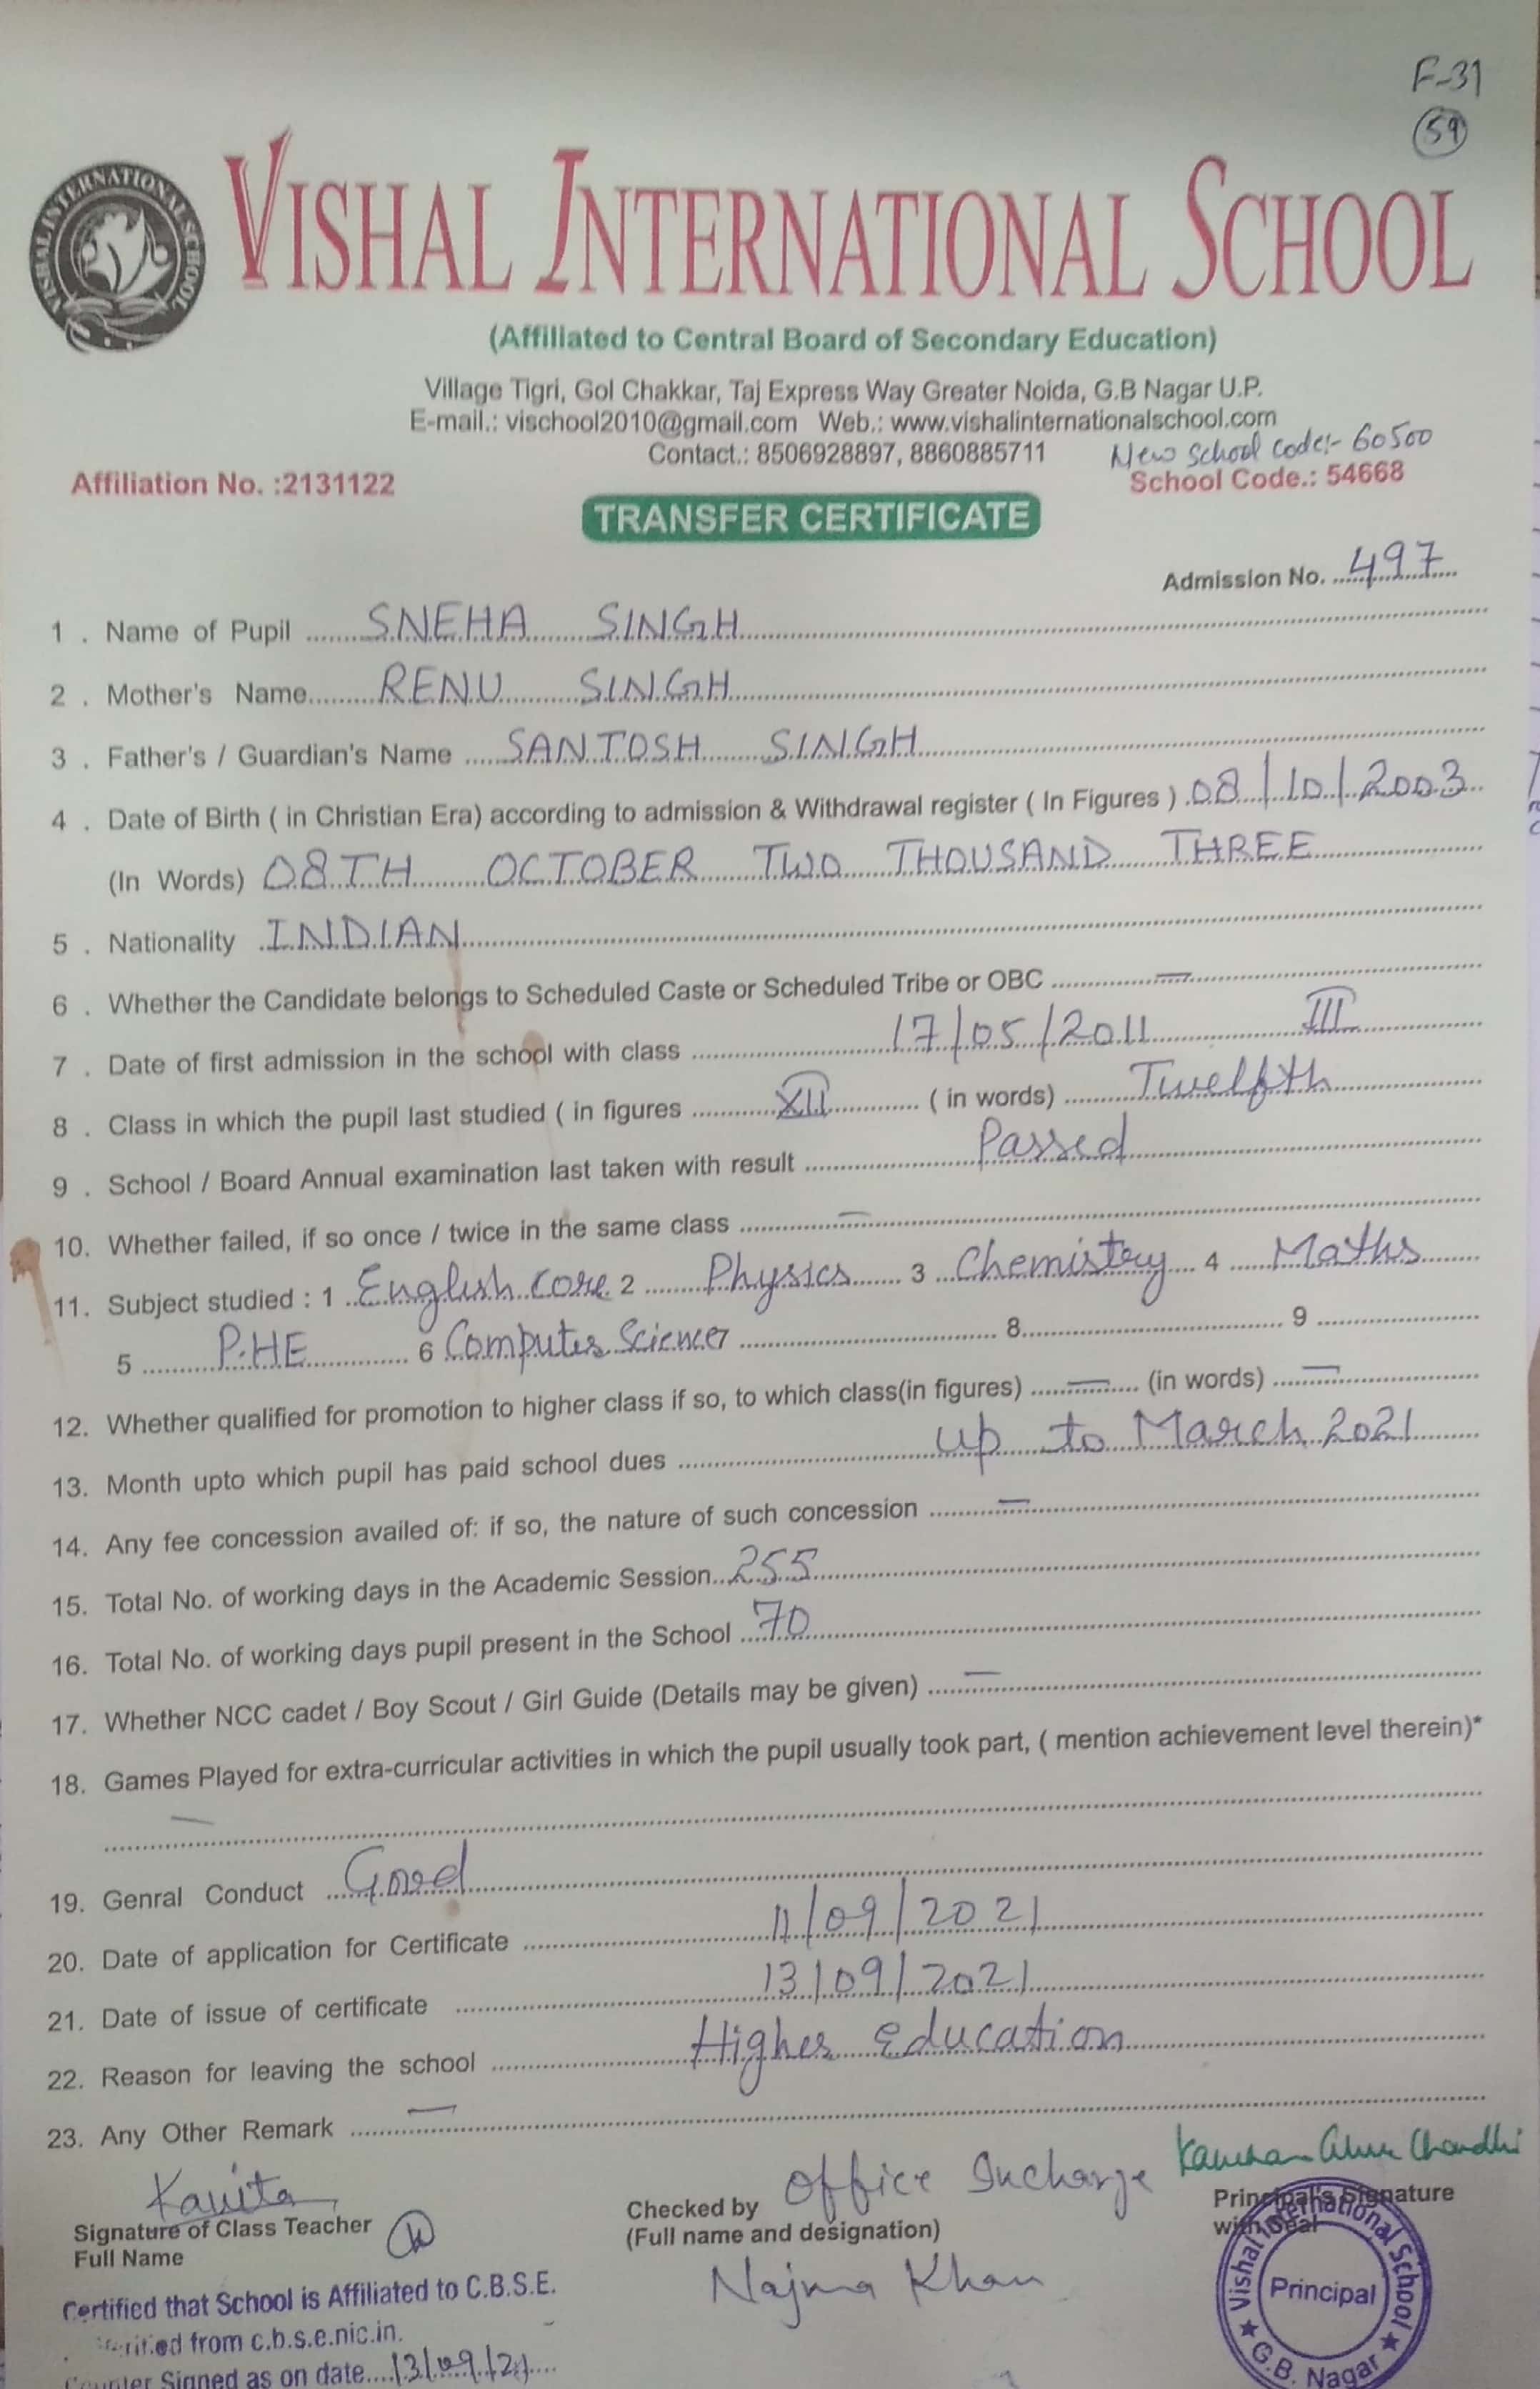 F-31
59
VISHAL INTERNATIONAL SCHOOL
VISHAL INTERNATIONAL SCHOOL
(Affiliated to Central Board of Secondary Education)
Village Tigri, Gol Chakkar, Taj Express Way Greater Noida, G.B Nagar U.P.
E-mail.: vischool2010@gmail.com Web.: www.vishalinternationalschool.com
Contact.: 8506928897, 8860885711 New School code:- 60500
Affiliation No. :2131122 School Code.: 54668
TRANSFER CERTIFICATE
Admission No. 497
1 . Name of Pupil SNEHA SINGH
2 . Mother's Name RENU SINGH
3 . Father's / Guardian's Name SANTOSH SINGH
4 . Date of Birth ( in Christian Era) according to admission & Withdrawal register ( In Figures ) 08/10/2003
(In Words) 08TH OCTOBER TWO THOUSAND THREE
5 . Nationality INDIAN
6 . Whether the Candidate belongs to Scheduled Caste or Scheduled Tribe or OBC —
7 . Date of first admission in the school with class 17/05/2011 III
8 . Class in which the pupil last studied ( in figures XII ( in words) Twelfth
9 . School / Board Annual examination last taken with result Passed
10. Whether failed, if so once / twice in the same class —
11. Subject studied : 1 English core 2 Physics 3 Chemistry 4 Maths
5 P.HE 6 Computer Science 7 8 9
12. Whether qualified for promotion to higher class if so, to which class(in figures) — (in words) —
13. Month upto which pupil has paid school dues up to March 2021
14. Any fee concession availed of: if so, the nature of such concession —
15. Total No. of working days in the Academic Session 255
16. Total No. of working days pupil present in the School 70
17. Whether NCC cadet / Boy Scout / Girl Guide (Details may be given) —
18. Games Played for extra-curricular activities in which the pupil usually took part, ( mention achievement level therein)*
—
19. Genral Conduct Good
20. Date of application for Certificate 11/09/2021
21. Date of issue of certificate 13/09/2021
22. Reason for leaving the school Higher Education
23. Any Other Remark —
Kavita
Signature of Class Teacher
Full Name
Checked by Office Incharge
(Full name and designation)
Najma Khan
Principal's Signature
with Seal
Vishal International School
Principal
G.B. Nagar
Certified that School is Affiliated to C.B.S.E.
from c.b.s.e.nic.in.
Signed as on date 13/09/21